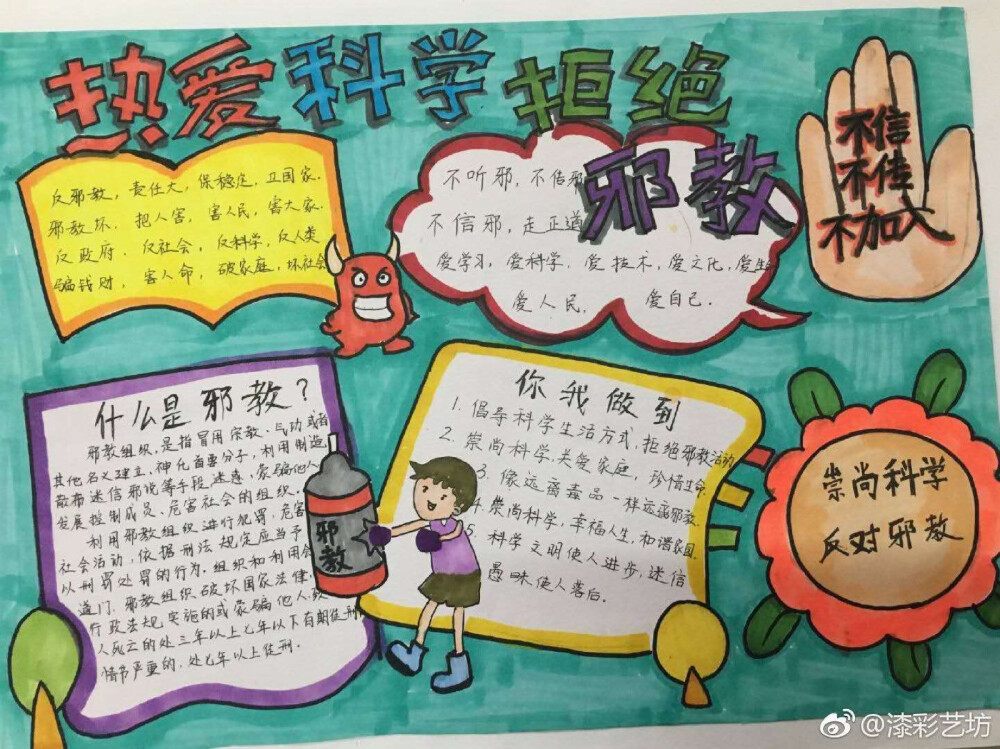 热爱科学拒绝
邪教
反邪教，责任大，保稳定，卫国家.
邪教坏，把人害，害人民，害大家.
反政府，反社会，反科学，反人类
骗钱财，害人命，破家庭，坏社会
不听邪，不传邪
不信邪，走正道
爱学习，爱科学，爱技术，爱文化，爱生
爱人民，爱自己.
不信
不传
不加入
什么是邪教？
邪教组织，是指冒用宗教、气功或者
其他名义建立、神化首要分子，利用制造，
散布迷信邪说等手段迷惑、蒙骗他人，
发展控制成员、危害社会的组织。
利用邪教组织进行犯罪，危害
社会活动，依据刑法规定应当予
以刑罚处罚的行为。组织和利用会
道门、邪教组织破坏国家法律、
行政法规实施的或蒙骗他人致
人死亡的处三年以上七年以下有期徒刑
情节严重的，处七年以上徒刑.
邪教
你我做到
1. 倡导科学生活方式，拒绝邪教活动
2. 崇尚科学，关爱家庭，珍惜生命.
3. 像远离毒品一样远离邪教.
4. 崇尚科学，幸福人生，和谐家园.
5. 科学文明使人进步，迷信
愚昧使人落后.
崇尚科学
反对邪教
@漆彩艺坊